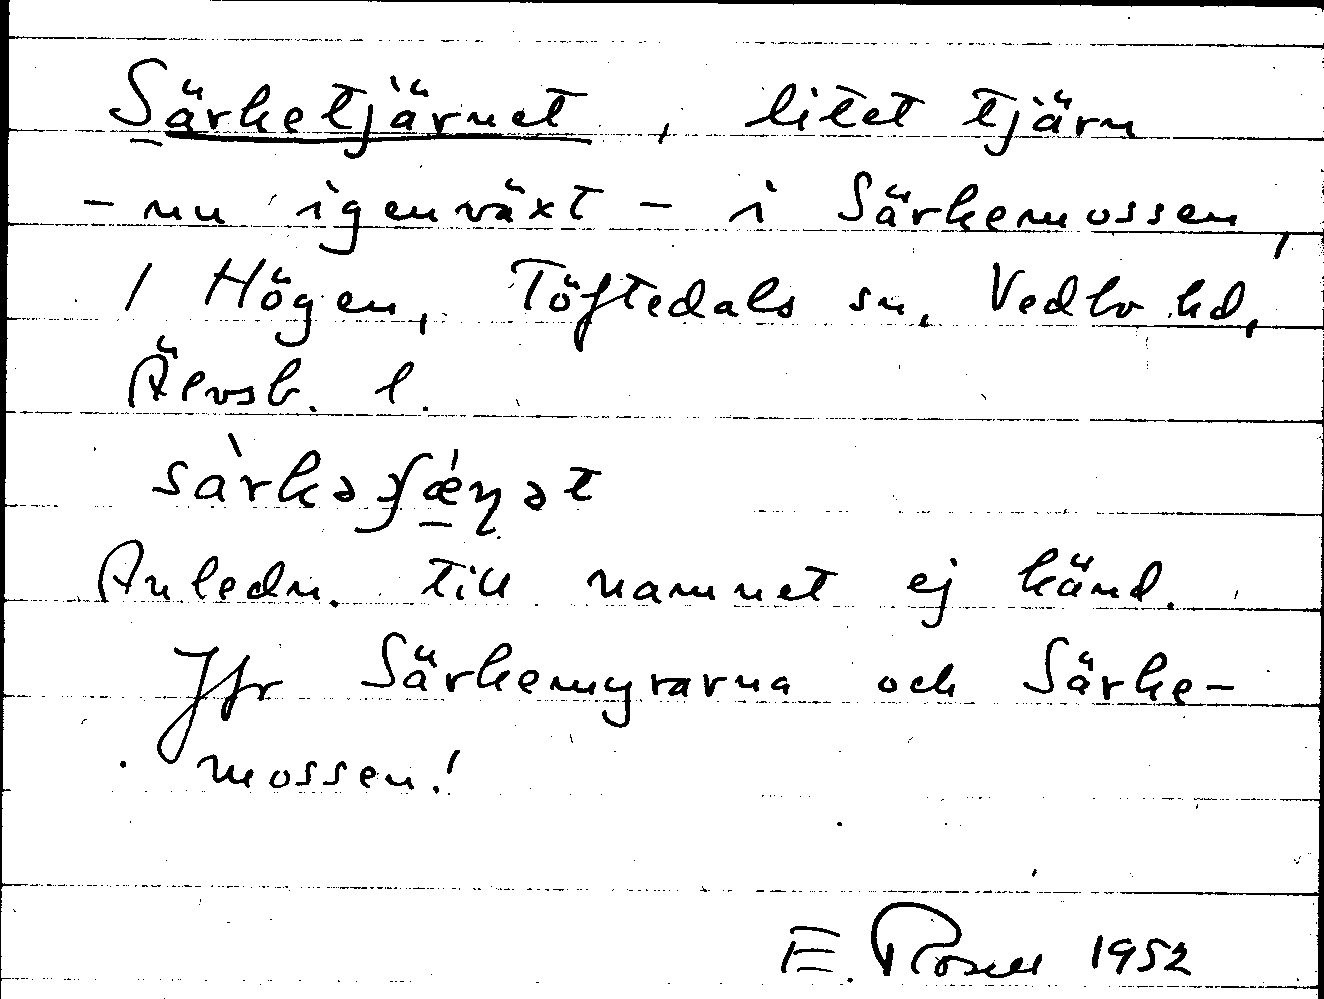 Särketjärnet, litet tjärn
- nu igenväxt - i Särkemossen,
/ Högen, Töftedals sn, Vedbo hd,
Älvsb. l.
Anledn. till namnet ej känd.
Jfr Särkemyrarna och Särke-
mossen!
E. Rosell 1952